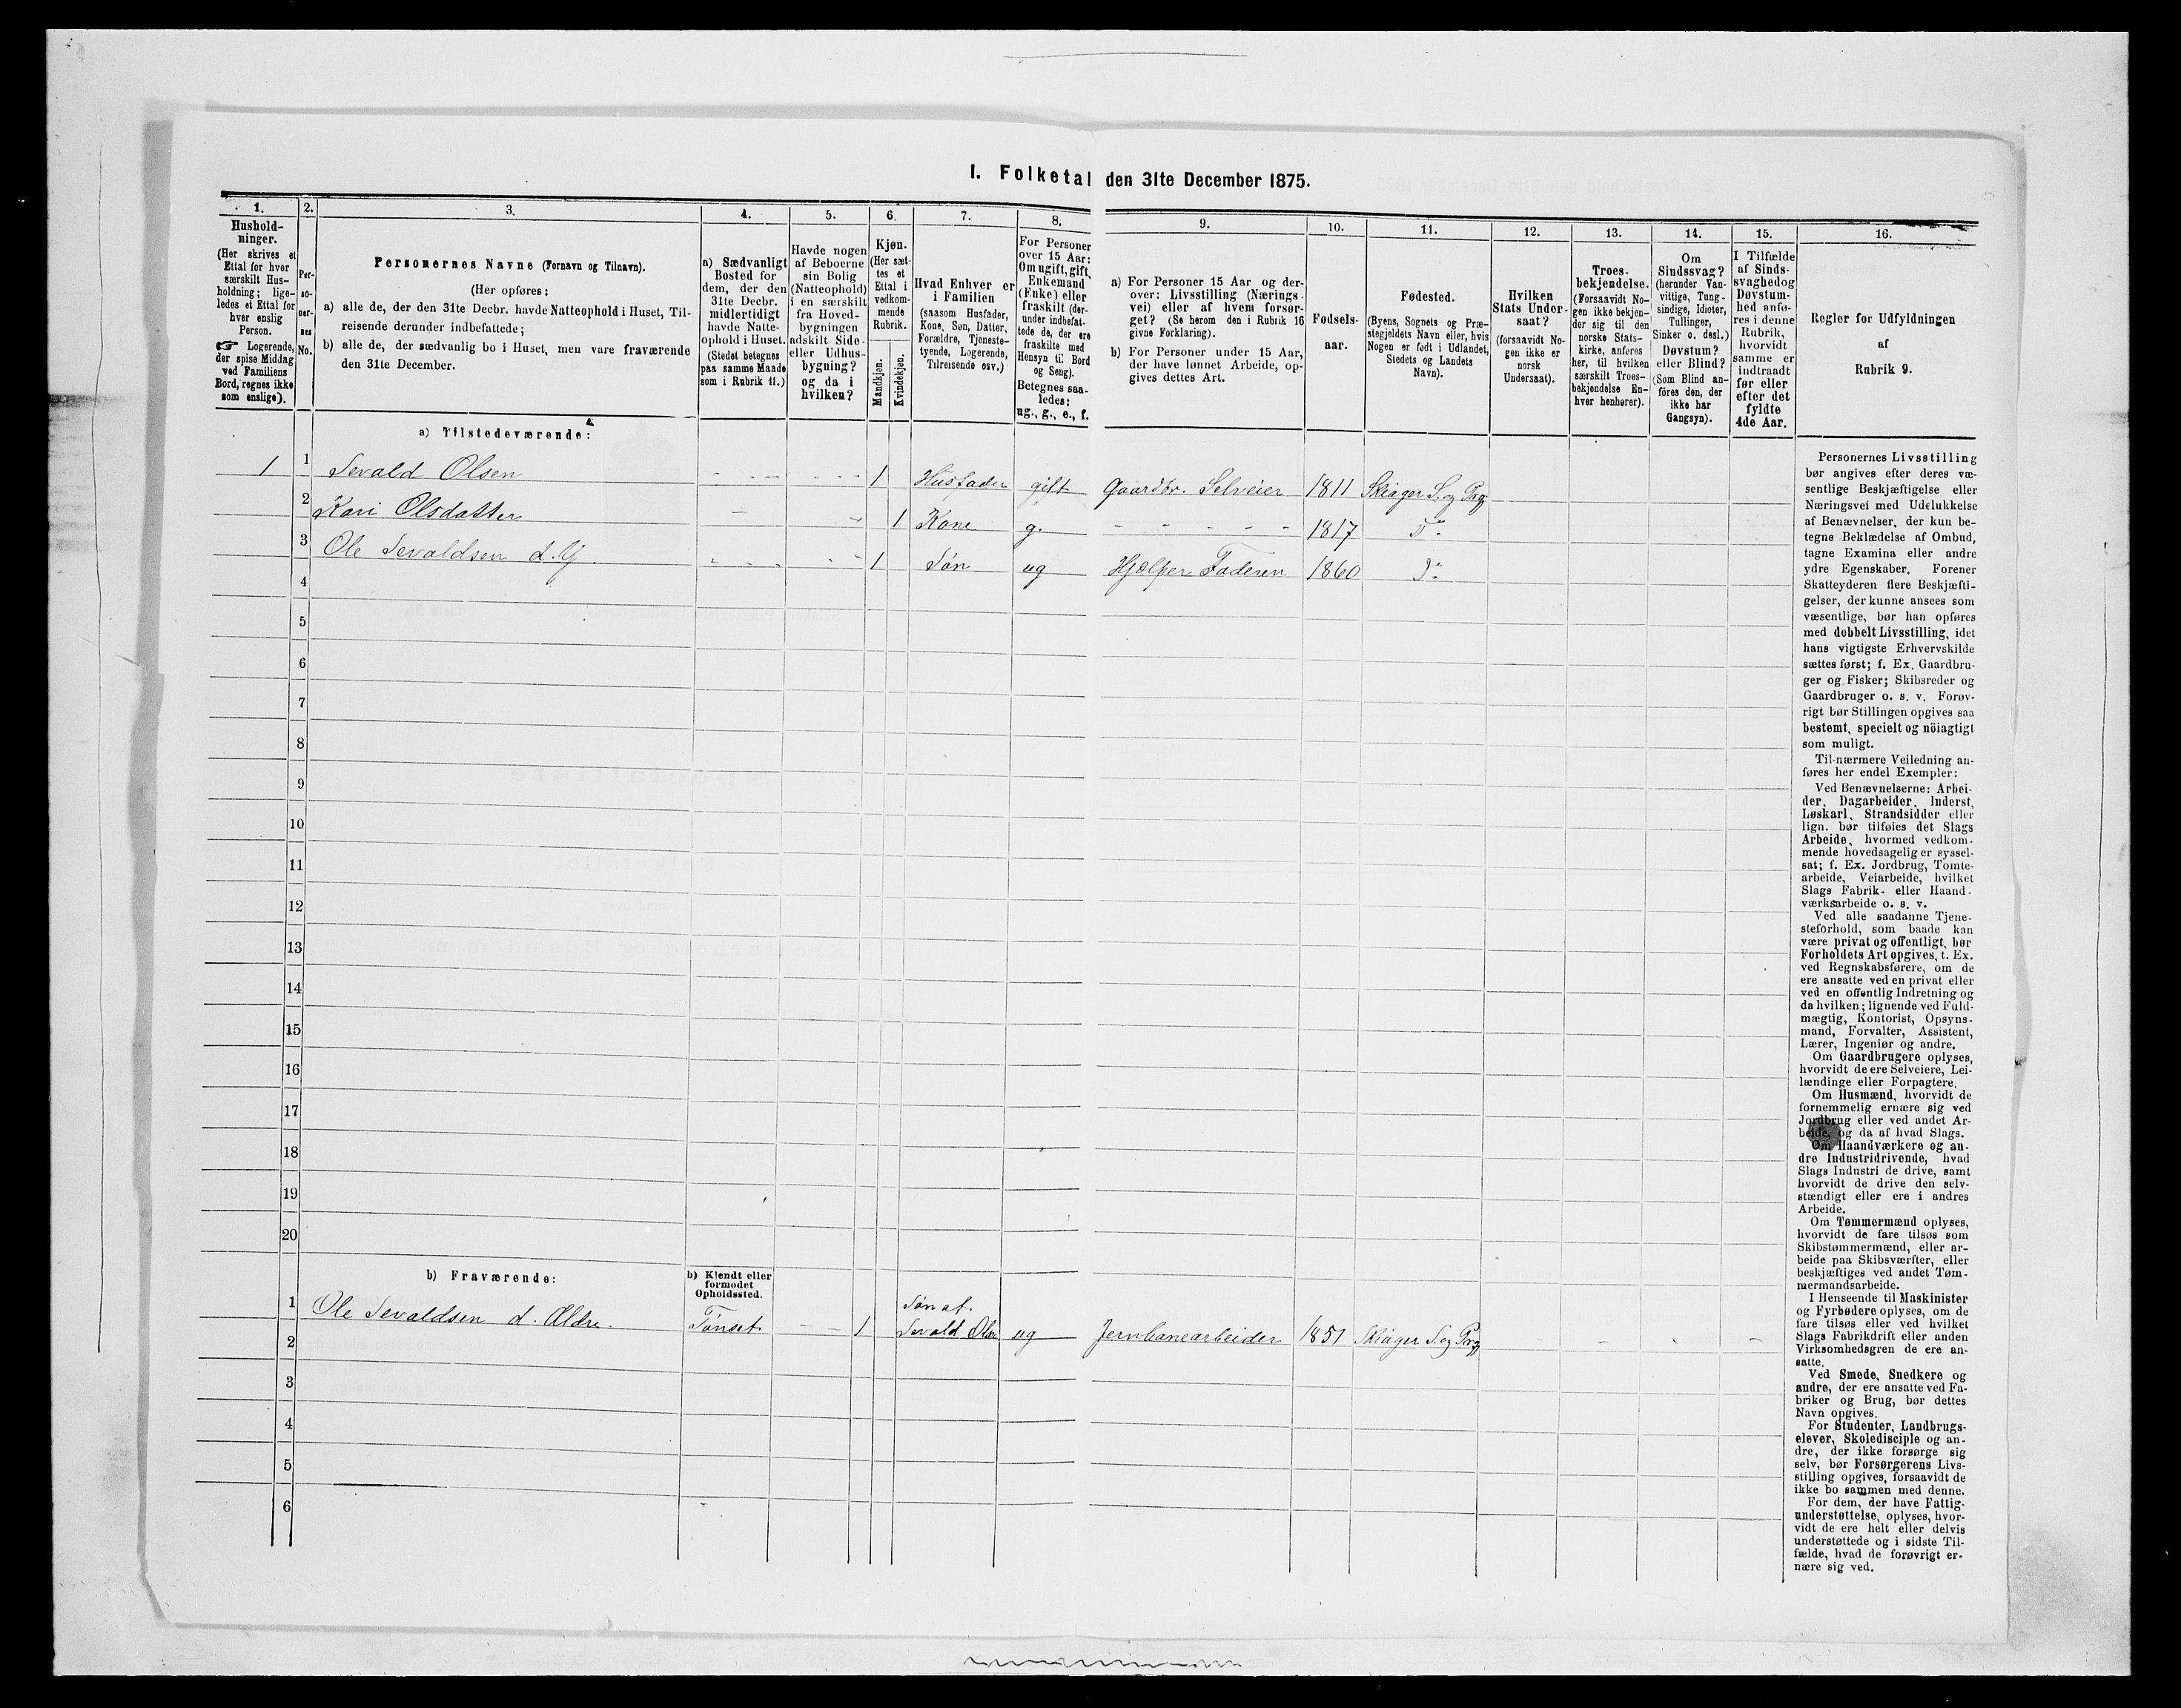 I. Folketal den 31te December 1875.
1.
Hushold-
ninger.
(Her skrives et
Ettal for hver
særskilt Hus-
holdning; lige-
ledes et Ettal for
hver enslig
Person.
☞ Logerende,
der spise Middag
ved Familiens
Bord, regnes ikke
som enslige).
2.
Per-
so-
ner-
nes
No.
3.
Personernes Navne (Fornavn og Tilnavn).
(Her opføres:
a) alle de, der den 31te Decbr. havde Natteophold i Huset, Til-
reisende derunder indbefattede;
b) alle de, der sædvanlig bo i Huset, men vare fraværende
den 31te December.
4.
a) Sædvanligt
Bosted for
dem, der den
31te Decbr.
midlertidigt
havde Natte-
ophold i Huset.
(Stedet betegnes
paa samme Maade
som i Rubrik 11.)
5.
Havde nogen
af Beboerne
sin Bolig
(Natteophold)
i en særskilt
fra Hoved-
bygningen
adskilt Side-
eller Udhus-
bygning?
og da i
hvilken?
6.
Kjøn.
(Her sæt-
tes et
Ettal i
vedkom-
mende
Rubrik.
Mandkjøn.
Kvindekjøn.
7.
Hvad Enhver er
i Familien
(saasom Husfader,
Kone, Søn, Datter,
Forældre, Tjeneste-
tyende, Logerende,
Tilreisende osv.)
8.
For Personer
over 15 Aar:
Om ugift, gift,
Enkemand
(Enke) eller
fraskilt (der-
under indbefat-
tede de, der ere
fraskilte med
Hensyn til Bord
og Seng).
Betegnes saa-
ledes:
ug., g., e., f.
9.
a) For Personer 15 Aar og der-
over: Livsstilling (Nærings-
vei) eller af hvem forsør-
get? (Se herom den i Rubrik 16
givne Forklaring).
b) For Personer under 15 Aar,
der have lønnet Arbeide, op-
gives dettes Art.
10.
Fødsels-
aar.
11.
Fødested.
(Byens, Sognets og Præ-
stegjeldets Navn eller, hvis
Nogen er født i Udlandet,
Stedets og Landets
Navn).
12.
Hvilken
Stats Under-
saat?
(forsaavidt No-
gen ikke er
norsk
Undersaat).
13.
Troes-
bekjendelse.
(Forsaavidt No-
gen ikke bekjen-
der sig til den
norske Stats-
kirke, anføres
her, til hvilken
særskilt Troes-
bekjendelse En-
hver henhører).
14.
Om
Sindssvag?
(herunder Van-
vittige, Tung-
sindige, Idioter,
Tullinger,
Sinker o. desl.)
Døvstum?
eller Blind?
(Som Blind an-
føres den, der
ikke har
Gangsyn).
15.
I Tilfælde
af Sinds-
svaghed og
Døvstum-
hed anfø-
res i denne
Rubrik,
hvorvidt
samme er
indtraadt
før eller
efter det
fyldte
4de Aar.
16.
Regler for Udfyldningen
af
Rubrik 9.
a) Tilstedeværende:
1 1 Sevald Olsen - - - - - - 1 Husfader gift Gaardbr. Selveier 1811 Skiager S. og Prg
2 Kari Olsdatter - - 1 Kone g. - - - - - 1817 Do.
3 Ole Sevaldsen d. Y. - - - - - 1 Søn ug Hjælper Faderen 1860 Do.
4
5
6
7
8
9
10
11
12
13
14
15
16
17
18
19
20
b) Fraværende:
b) Kjendt eller
formodet
Opholdssted.
1 Ole Sevaldsen d. Ældre. Tønset - - 1 Søn af
Sevald Olsen ug Jernbanearbeider 1851 Skiager S. og Prg - - -
2
3
4
5
6
Personernes Livsstilling
bør angives efter deres væ-
sentlige Beskjæftigelse eller
Næringsvei med Udelukkelse
af Benævnelser, der kun be-
tegne Beklædelse af Ombud,
tagne Examina eller andre
ydre Egenskaber. Forener
Skatteyderen flere Beskjæfti-
gelser, der kunne ansees som
væsentlige, bør han opføres
med dobbelt Livsstilling, idet
hans vigtigste Erhvervskilde
sættes først; f. Ex. Gaardbru-
ger og Fisker; Skibsreder og
Gaardbruger o. s. v. Forøv-
rigt bør Stillingen opgives saa
bestemt, specielt og nöiagtigt
som muligt.
Til nærmere Veiledning an-
føres her endel Exempler:
Ved Benævnelserne: Arbei-
der, Dagarbeider, Inderst,
Løskarl, Strandsidder eller
lign. bør tilføies det Slags
Arbeide, hvormed vedkom-
mende hovedsagelig er syssel-
sat; f. Ex. Jordbrug, Tomte-
arbeide, Veiarbeide, hvilket
Slags Fabrik- eller Haand-
værksarbeide o. s. v.
Ved alle saadanne Tjene-
steforhold, som baade kan
være privat og offentligt, bør
Forholdets Art opgives, t. Ex.
ved Regnskabsførere, om de
ere ansatte ved en privat eller
ved en offentlig Indretning og
da hvilken; lignende ved Fuld-
mægtig, Kontorist, Opsyns-
mand, Forvalter, Assistent,
Lærer, Ingeniør og andre.
Om Gaardbrugere oplyses,
hvorvidt de ere Selveiere, Lei-
lændinge eller Forpagtere.
Om Husmænd, hvorvidt de
fornemmelig ernære sig ved
Jordbrug eller ved andet Ar-
beide, og da af hvad Slags.
Om Haandværkere og an-
dre Industridrivende, hvad
Slags Industri de drive, samt
hvorvidt de drive den selv-
stændigt eller ere i andres
Arbeide.
Om Tømmermænd oplyses,
hvorvidt de fare tilsøs som
Skibstømmermænd, eller ar-
beide paa Skibsværfter, eller
beskjæftiges ved andet Tøm-
mermandsarbeide.
I Henseende til Maskinister
og Fyrbødere oplyses, om de
fare tilsøs eller ved hvilket
Slags Fabrikdrift eller anden
Virksomhedsgren de ere an-
satte.
Ved Smede, Snedkere og
andre, der ere ansatte ved Fa-
briker og Brug, bør dettes
Navn opgives.
For Studenter, Landbrugs-
elever, Skoledisciple og an-
dre, der ikke forsørge sig
selv, bør Forsørgerens Livs-
stilling opgives, forsaavidt de
ikke bo sammen med denne.
For dem, der have Fattig-
understøttelse, oplyses, hvor-
vidt de ere helt eller delvis
understøttede og i sidste Til-
fælde, hvad de forøvrigt er-
nære sig ved.